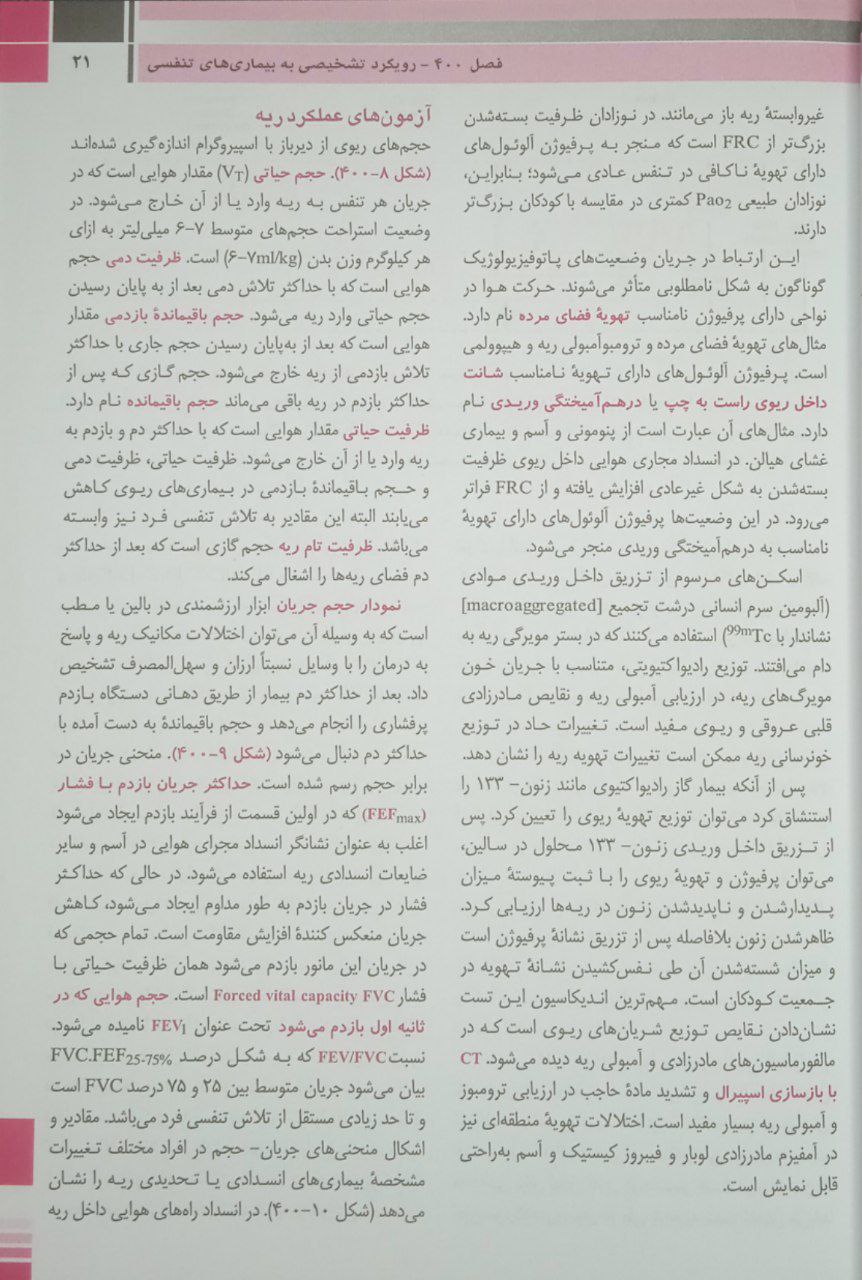 فصل ۴۰۰ - رویکرد تشخیصی به بیماری‌های تنفسی
۲۱
غیروابستهٔ ریه باز می‌مانند. در نوزادان ظرفیت بسته‌شدن
بزرگ‌تر از FRC است که منجر به پرفیوژن آلوئول‌های
دارای تهویهٔ ناکافی در تنفس عادی می‌شود؛ بنابراین،
نوزادان طبیعی Pao₂ کمتری در مقایسه با کودکان بزرگ‌تر
دارند.
ایـن ارتباط در جریان وضـعیت‌های پـاتوفیزیولوژیک
گوناگون به شکل نامطلوبی متأثر می‌شوند. حرکت هـوا در
نواحی دارای پرفیوژن نامناسب تهویهٔ فضای مرده نام دارد.
مثال‌های تهویهٔ فضای مرده و ترومبوآمبولی ریه و هیپوولمی
است. پـرفیوژن آلوئـول‌های دارای تـهویهٔ نـامناسب شانت
داخل ریوی راست به چپ یا درهـم‌آمیختگی وریـدی نام
دارد. مثال‌های آن عبارت است از پنومونی و آسم و بیماری
غشای هیالن. در انسداد مجاری هوایی داخل ریوی ظرفیت
بسته‌شدن به شکل غیرعادی افزایش یافته و از FRC فراتر
می‌رود. در این وضعیت‌ها پرفیوژن آلوئول‌های دارای تهویهٔ
نامناسب به درهم‌آمیختگی وریدی منجر می‌شود.
اسکـن‌های مـرسوم از تـزریق داخـل وریـدی مـوادی
(آلبومین سرم انسانی درشت تجمیع [macroaggregated]
نشاندار با ⁹⁹ᵐTc) استفاده می‌کنند که در بستر مویرگی ریه به
دام می‌افتند. توزیع رادیواکتیویتی، متناسب با جـریان خـون
مویرگ‌های ریه، در ارزیابی آمبولی ریه و نقایص مـادرزادی
قلبی عـروقی و ریـوی مـفید است. تـغییرات حـاد در توزیع
خونرسانی ریه ممکن است تغییرات تهویه ریه را نشان دهد.
پس از آنکه بیمار گاز رادیواکتیوی مانند زنون- ۱۳۳ را
استنشاق کرد می‌توان توزیع تهویهٔ ریوی را تعیین کرد. پس
از تـزریق داخـل وریـدی زنـون- ۱۳۳ مـحلول در سـالین،
می‌توان پرفیوژن و تهویهٔ ریـوی را بـا ثـبت پـیوستهٔ مـیزان
پـدیدارشـدن و نـاپدیدشدن زنـون در ریـه‌ها ارزیـابی کـرد.
ظاهرشدن زنون بلافاصله پس از تزریق نشانهٔ پرفیوژن است
و میزان شسته‌شدن آن طی نـفس‌کشیدن نشـانهٔ تـهویه در
جـمعیت کـودکان است. مـهم‌ترین انـدیکاسیون ایـن تست
نشـان‌دادن نـقایص تـوزیع شـریان‌های ریـوی است کـه در
مالفورماسیون‌های مادرزادی و آمبولی ریه دیده می‌شود. CT
با بازسازی اسپیرال و تشدید مادهٔ حاجب در ارزیابی ترومبوز
و آمبولی ریه بسیار مفید است. اختلالات تهویهٔ منطقه‌ای نیز
در آمفیزم مادرزادی لوبار و فیبروز کیستیک و آسم به‌راحتی
قابل نمایش است.
آزمون‌های عملکرد ریه
حجم‌های ریوی از دیرباز با اسپیروگرام اندازه‌گیری شده‌انـد
(شکل ۸-۴۰۰). حجم حیاتی (V_T) مقدار هوایی است که در
جریان هر تنفس بـه ریـه وارد یـا از آن خـارج مـی‌شود. در
وضعیت استراحت حجم‌های متوسط ۷-۶ میلی‌لیتر به ازای
هر کیلوگرم وزن بدن (۶-۷ml/kg) است. ظرفیت دمی حجم
هوایی است که با حداکثر تلاش دمی بعد از به پایان رسیدن
حجم حیاتی وارد ریه می‌شود. حجم باقیماندهٔ بازدمی مقدار
هوایی است که بعد از به‌پایان رسیدن حجم جاری با حداکثر
تلاش بازدمی از ریه خارج می‌شود. حجم گـازی کـه پس از
حداکثر بازدم در ریه باقی می‌ماند حجم باقیمانده نـام دارد.
ظرفیت حیاتی مقدار هوایی است که با حداکثر دم و بازدم به
ریه وارد یا از آن خارج می‌شود. ظرفیت حیاتی، ظرفیت دمی
و حـجم بـاقیماندهٔ بـازدمی در بـیماری‌های ریـوی کـاهش
می‌یابند البته این مقادیر به تلاش تنفسی فـرد نـیز وابسـته
می‌باشد. ظرفیت تام ریه حجم گازی است که بعد از حداکثر
دم فضای ریه‌ها را اشغال می‌کند.
نمودار حجم جریان ابزار ارزشمندی در بالین یا مـطب
است که به وسیله آن می‌توان اختلالات مکانیک ریه و پاسخ
به درمان را با وسایل نسبتاً ارزان و سهل‌المصرف تشخیص
داد. بعد از حداکثر دم بیمار از طریق دهـانی دستگاه بـازدم
پرفشاری را انجام می‌دهد و حجم باقیماندهٔ به دست آمده با
حداکثر دم دنبال می‌شود (شکل ۹-۴۰۰). منحنی جریان در
برابر حجم رسم شده است. حداکثر جریان بازدم بـا فشـار
(FEFmax) که در اولین قسمت از فرآیند بازدم ایجاد می‌شود
اغلب به عنوان نشانگر انسداد مجرای هوایی در آسم و سایر
ضایعات انسدادی ریه استفاده می‌شود. در حالی که حداکـثر
فشار در جریان بازدم به طور مداوم ایجاد مـی‌شود، کـاهش
جریان منعکس کنندهٔ افزایش مقاومت است. تمام حجمی که
در جریان این مانور بازدم می‌شود همان ظرفیت حیاتی بـا
فشار Forced vital capacity FVC است. حجم هوایی که در
ثانیه اول بازدم می‌شود تحت عنوان FEV₁ نامیده می‌شود.
نسبت FEV/FVC کـه بـه شکـل درصـد FVC.FEF₂₅₋₇₅%
بیان می‌شود جریان متوسط بین ۲۵ و ۷۵ درصد FVC است
و تا حد زیادی مستقل از تلاش تنفسی فرد می‌باشد. مقادیر و
اشکال منحنی‌های جریان- حجم در افراد مختلف تـغییرات
مشخصهٔ بیماری‌های انسـدادی یـا تـحدیدی ریـه را نشـان
می‌دهد (شکل ۱۰-۴۰۰). در انسداد راه‌های هوایی داخل ریه